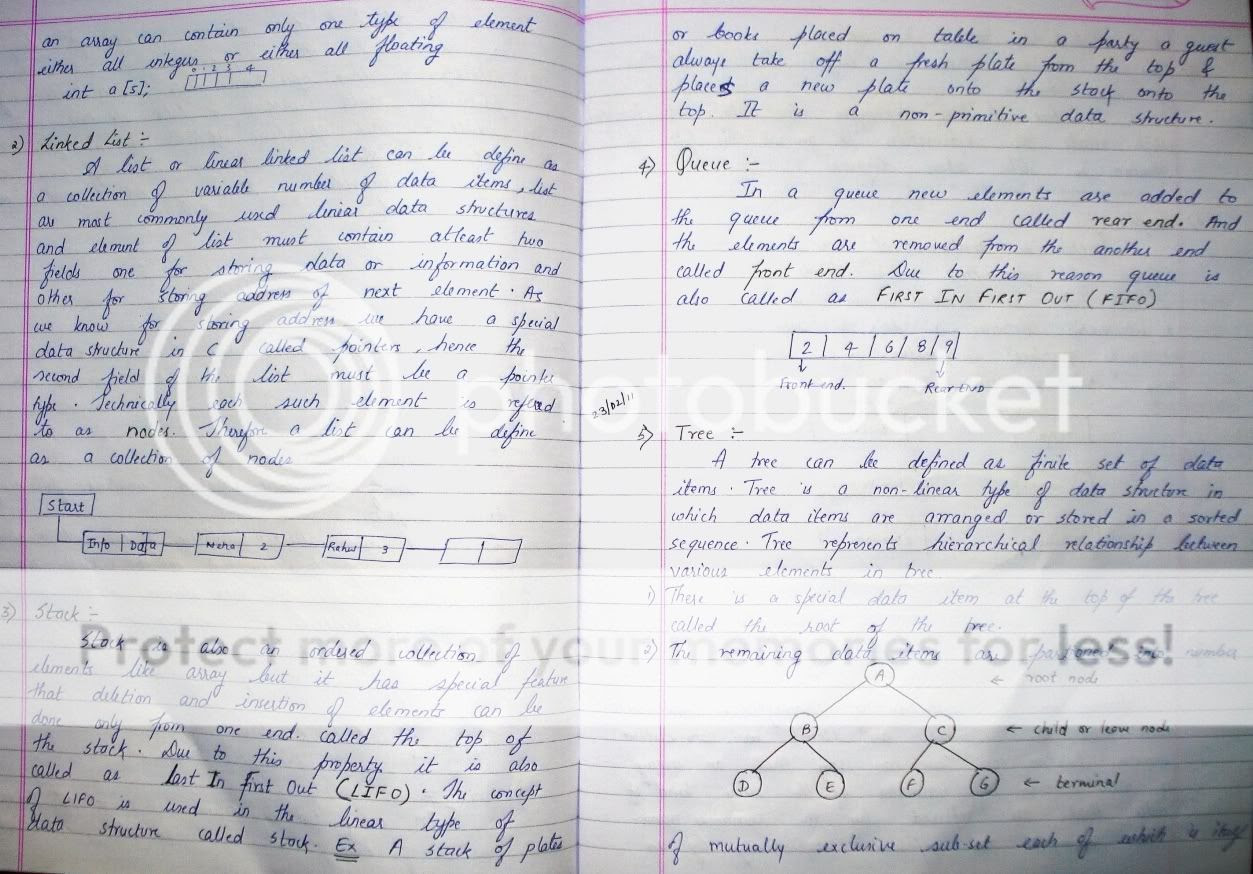 an array can contain only one type of element
either all integers or either all floating
0 1 2 3 4
int a[5];
2) Linked List :-
A list or linear linked list can be define as
a collection of variable number of data items, list
are most commonly used linear data structures
and element of list must contain atleast two
fields one for storing data or information and
other for storing address of next element. As
we know for storing address we have a special
data structure in C called pointers, hence the
second field of the list must be a pointer
type. Technically each such element is refered
to as nodes. Therefore a list can be define
as a collection of nodes
Start
Info Data Neha 2 Rahul 3
3) Stack :-
Stack is also an ordered collection of
elements like array but it has special feature
that deletion and insertion of elements can be
done only from one end. called the top of
the stack. Due to this property it is also
called as Last In First Out (LIFO). The concept
of LIFO is used in the linear type of
data structure called stack. Ex A stack of plates
or books placed on table in a party a guest
always take off a fresh plate from the top &
places a new plate onto the stack onto the
top. It is a non-primitive data structure.
4) Queue :-
In a queue new elements are added to
the queue from one end called rear end. And
the elements are removed from the another end
called front end. Due to this reason queue is
also called as FIRST IN FIRST OUT (FIFO)
2 4 6 8 9
Front end. Rear end
23/02/11
5) Tree :-
A tree can be defined as finite set of data
items. Tree is a non-linear type of data structure in
which data items are arranged or stored in a sorted
sequence. Tree represents hierarchical relationship between
various elements in tree.
1) There is a special data item at the top of the tree
called the root of the tree.
2) The remaining data items are partioned into number
A ← root node
B C ← child or leave node
D E F G ← terminal
of mutually exclusive sub-set each of which is itself
photobucket
Protect more of your memories for less!